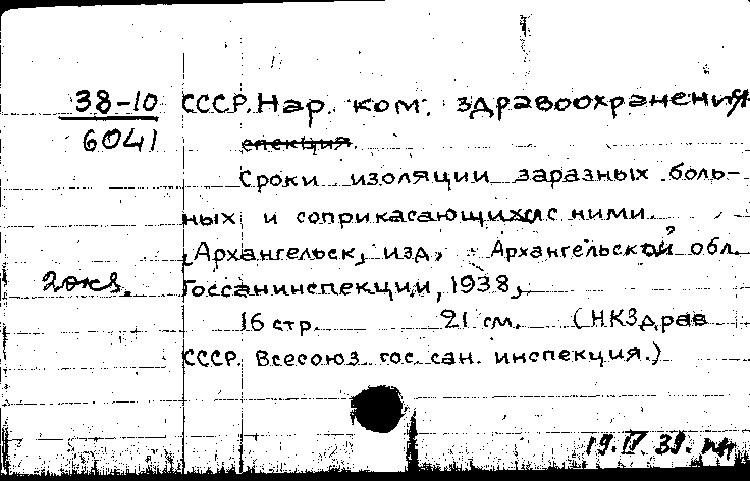 38-10 СССР. Нар. ком. здравоохранения
6041 спекция.
Сроки изоляции заразных боль-
ных и соприкасающихся с ними.
Архангельск, изд. Архангельской обл.
2 экз. Госсанинспекции, 1938,
16 стр. 21 см. (НКЗдрав
СССР. Всесоюз. гос. сан. инспекция.)
19.IV.39.